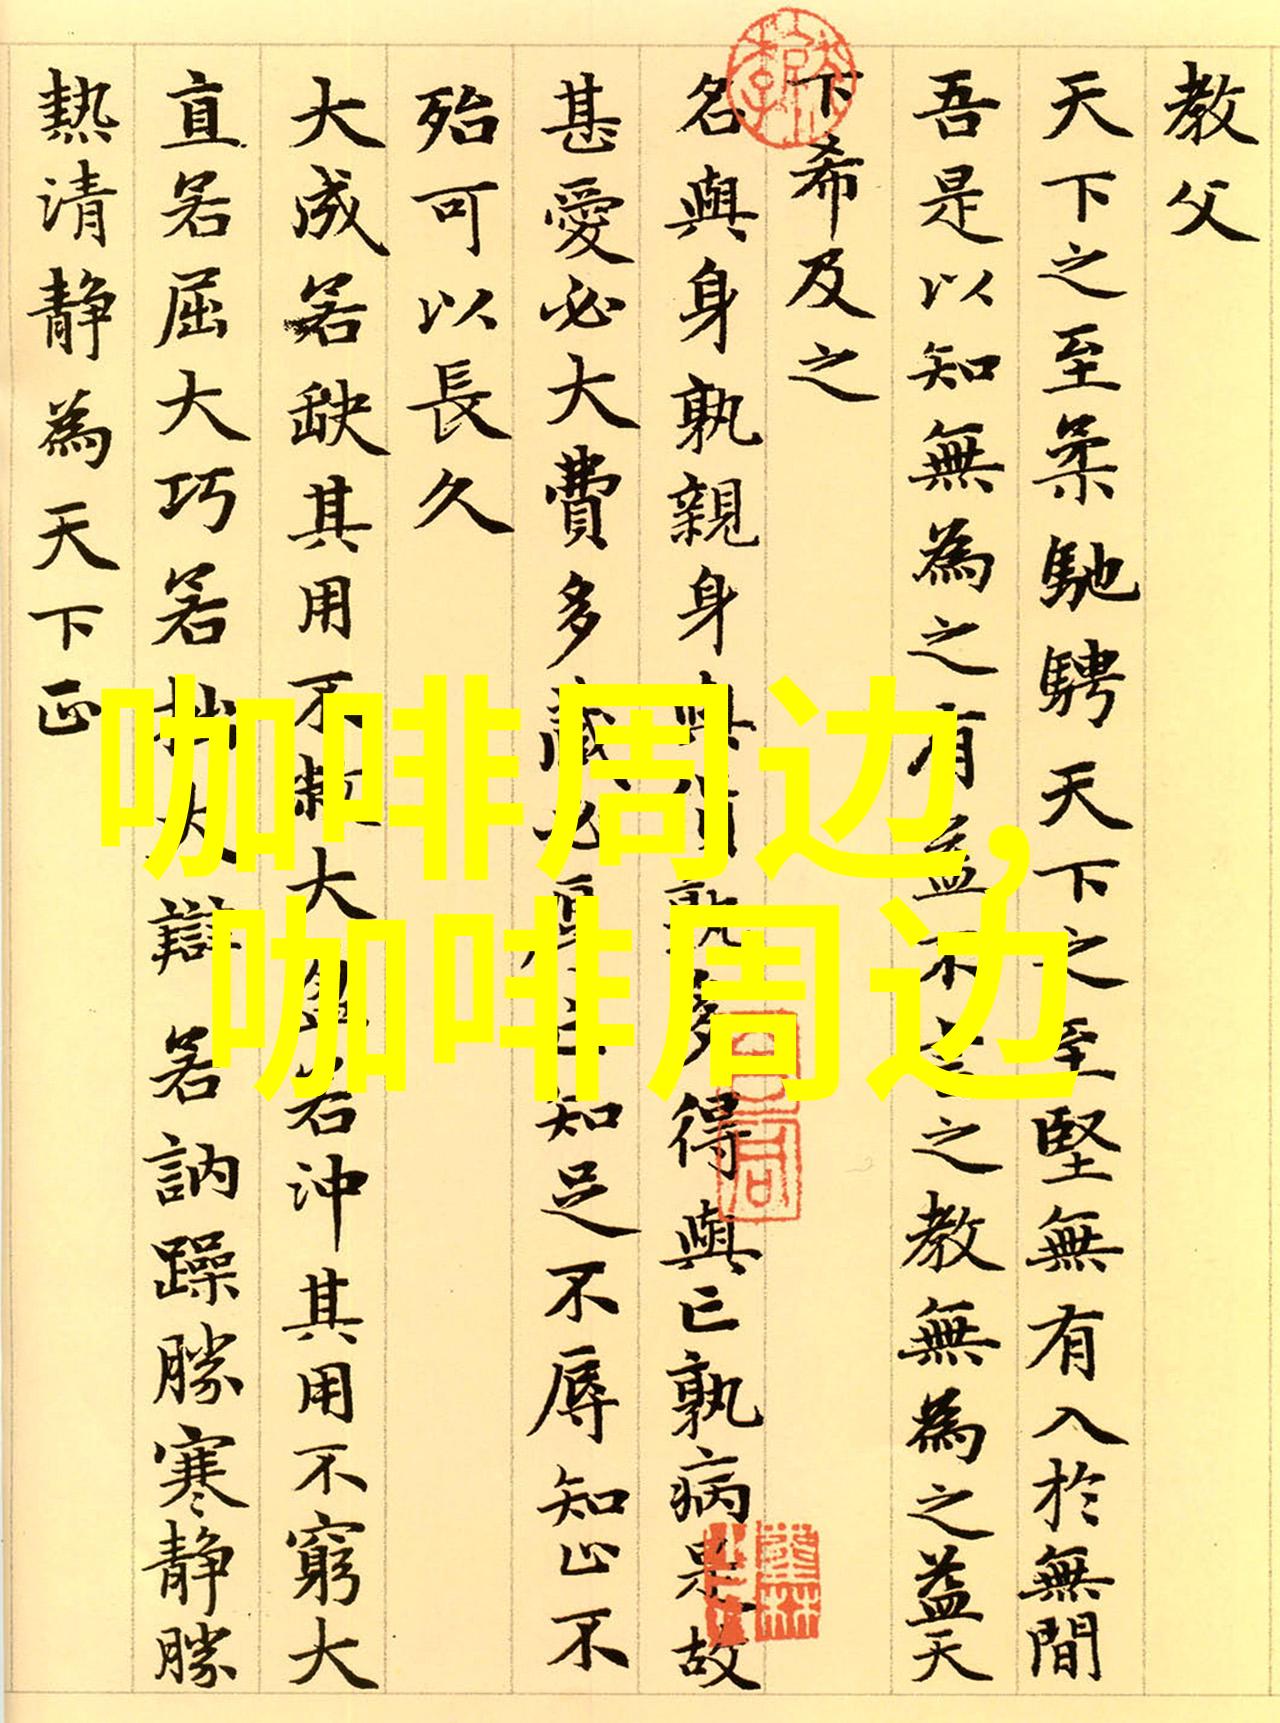 教父
天下之至柔馳騁天下之至堅無有入於無間
吾是以知無為之有益不言之教無為之益天
下希及之
名與身孰親身與貨孰多得與亡孰病是故
甚愛必大費多藏必厚亡知足不辱知止不
殆可以長久
大成若缺其用不敝大盈若沖其用不窮大
直若屈大巧若拙大辯若訥躁勝寒静勝
熱清静為天下正
咖啡周边,
咖啡周边